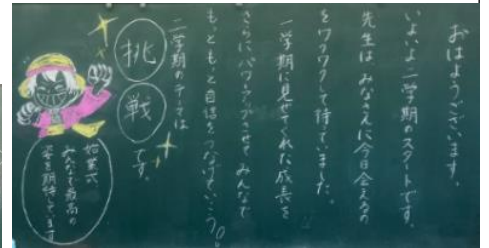 おはようございます。
いよいよ二学期のスタートです。
先生は、みなさんに今日会えるの
をワクワクして待っていました。
一学期に見せてくれた成長を
さらにパワーアップさせて、みんなで
もっともっと自信をつけていこう。
二学期のテーマは
挑戦です。
始業式、
みんなの最高の
姿を期待しています